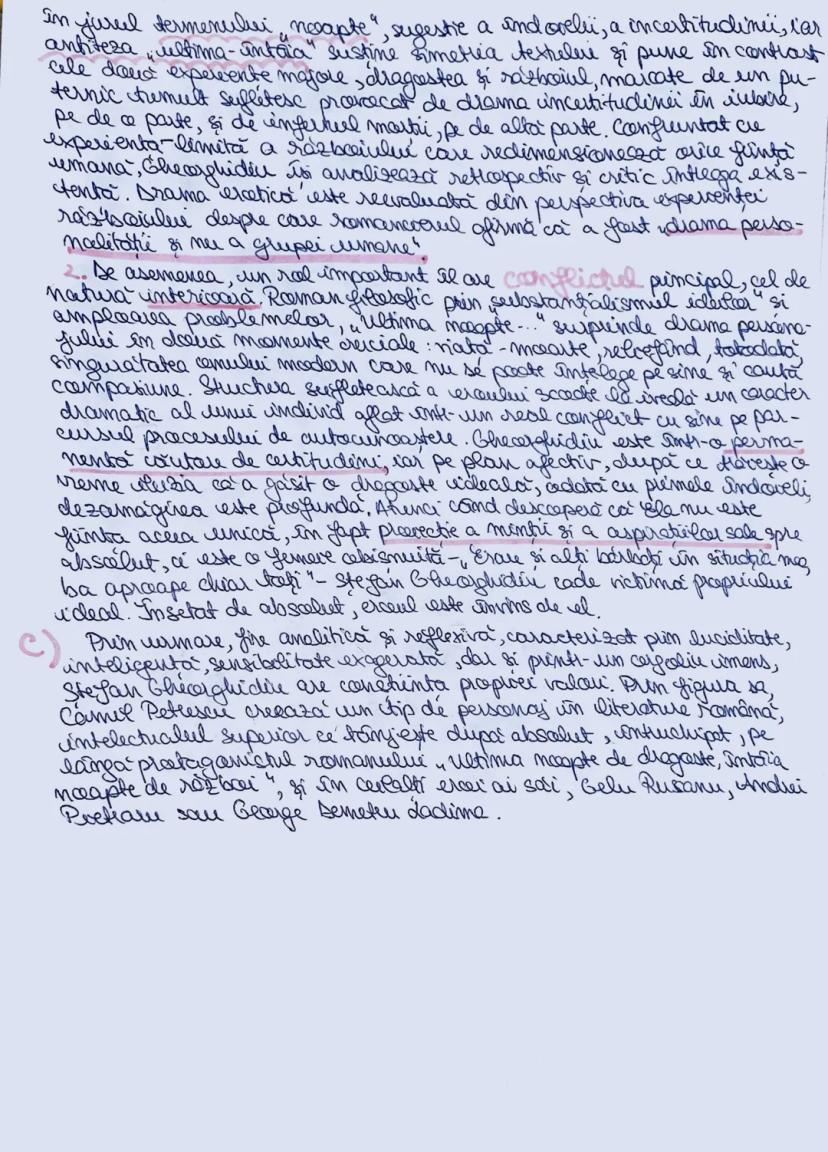 în jurul termenului „noapte", sugestie a îndoielii, a incertitudinii, iar
antiteza „ultima-întâia" susține simetria textului și pune în contrast
cele două experiențe majore, dragostea și războiul, marcate de un pu-
ternic tumult sufletesc provocat de drama incertitudinii în iubire,
pe de o parte, și de infernul morții, pe de altă parte. Confruntat cu
experiența-limită a războiului care redimensionează orice ființă
umană, Gheorghidiu își analizează retrospectiv și critic întreaga exis-
tență. Drama erotică este reevaluată din perspectiva experienței
războiului despre care romancierul afirmă că a fost „drama perso-
nalității și nu a grupei umane".
2. De asemenea, un rol important îl are conflictul principal, cel de
natură interioară. Roman filosofic prin „substanțialismul ideilor" și
amploarea problemelor, „Ultima noapte..." surprinde drama persona-
jului în două momente cruciale: viață-moarte, reliefând, totodată,
singurătatea omului modern care nu se poate înțelege pe sine și caută
compasiune. Structura sufletească a eroului scoate la iveală un caracter
dramatic al unui individ aflat într-un real conflict cu sine pe par-
cursul procesului de autocunoaștere. Gheorghidiu este într-o perma-
nentă căutare de certitudini, iar pe plan afectiv, după ce trăiește o
vreme iluzia că a găsit o dragoste ideală, odată cu primele îndoieli,
dezamăgirea este profundă. Atunci când descoperă că Ela nu este
ființa aceea unică, în fapt proiecție a minții și a aspirațiilor sale spre
absolut, ci este o femeie obișnuită - „Erau și alți bărbați în situația mea,
ba aproape chiar toți" - Ștefan Gheorghidiu cade victimă propriului
ideal. Însetat de absolut, eroul este învins de el.
c) Prin urmare, fire analitică și reflexivă, caracterizat prin luciditate,
inteligență, sensibilitate exagerată, dar și printr-un orgoliu imens,
Ștefan Gheorghidiu are conștiința propriei valori. Prin figura sa,
Camil Petrescu creează un tip de personaj în literatura română,
intelectualul superior ce tânjește după absolut, întruchipat, pe
lângă protagonistul romanului „Ultima noapte de dragoste, întâia
noapte de război", și în ceilalți eroi ai săi, Gelu Ruscanu, Andrei
Pietraru sau George Demetru Ladima.